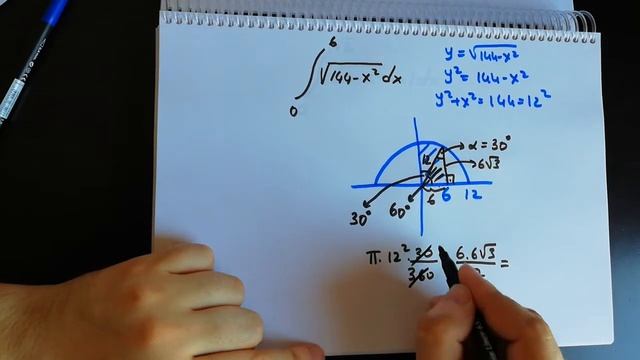 ∫₀⁶ √144-x² dx
y = √144-x²
y² = 144-x²
y²+x² = 144 = 12²
α = 30°
12
6√3
6 6 12
30° 60°
π.12². 30/360 6.6√3/2 =